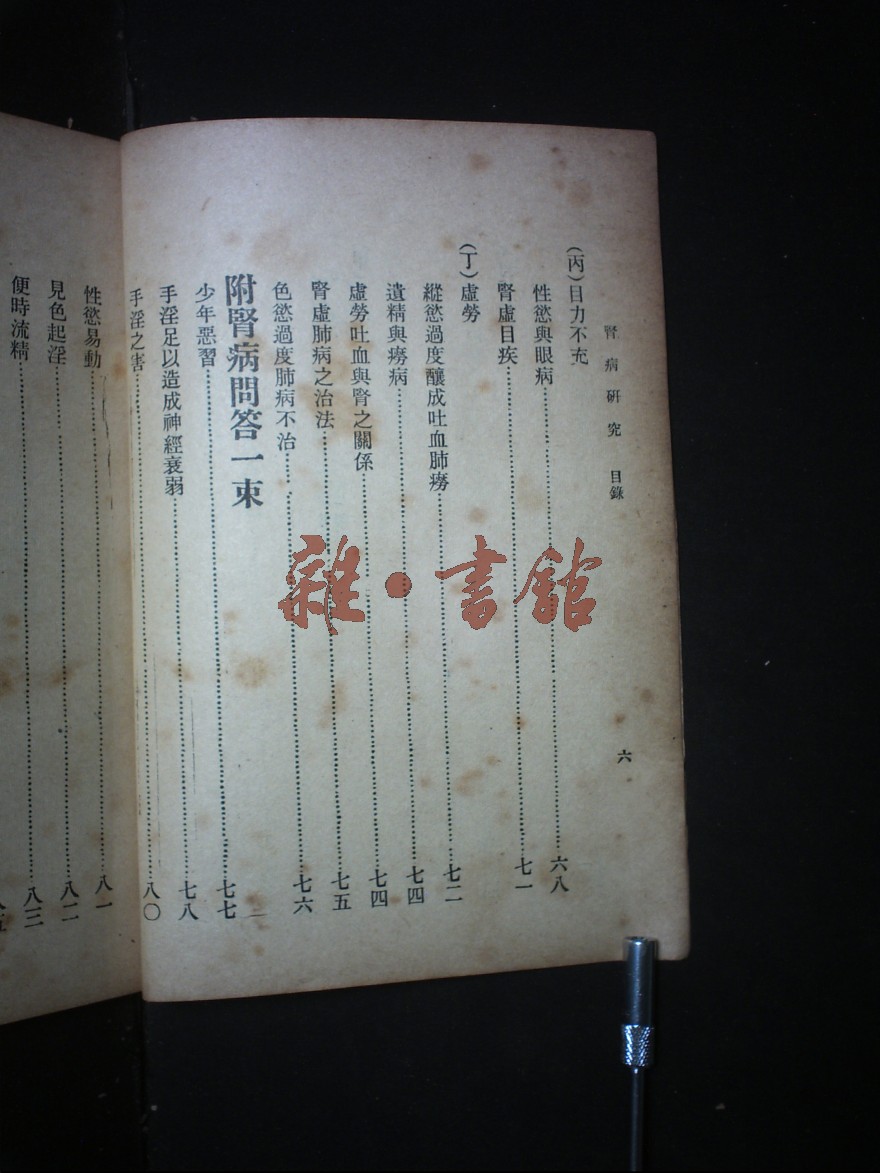 腎病研究 目錄 六
(丙)目力不充
性慾與眼病 六八
腎虛目疾 七一
(丁)虛勞
縱慾過度釀成吐血肺癆 七二
遺精與癆病 七四
虛勞吐血與腎之關係 七四
腎虛肺病之治法 七五
色慾過度肺病不治 七六
附腎病問答一束
少年惡習 七七
手淫足以造成神經衰弱 七八
手淫之害 八〇
性慾易動 八一
見色起淫 八二
便時流精 八三
雜·書館